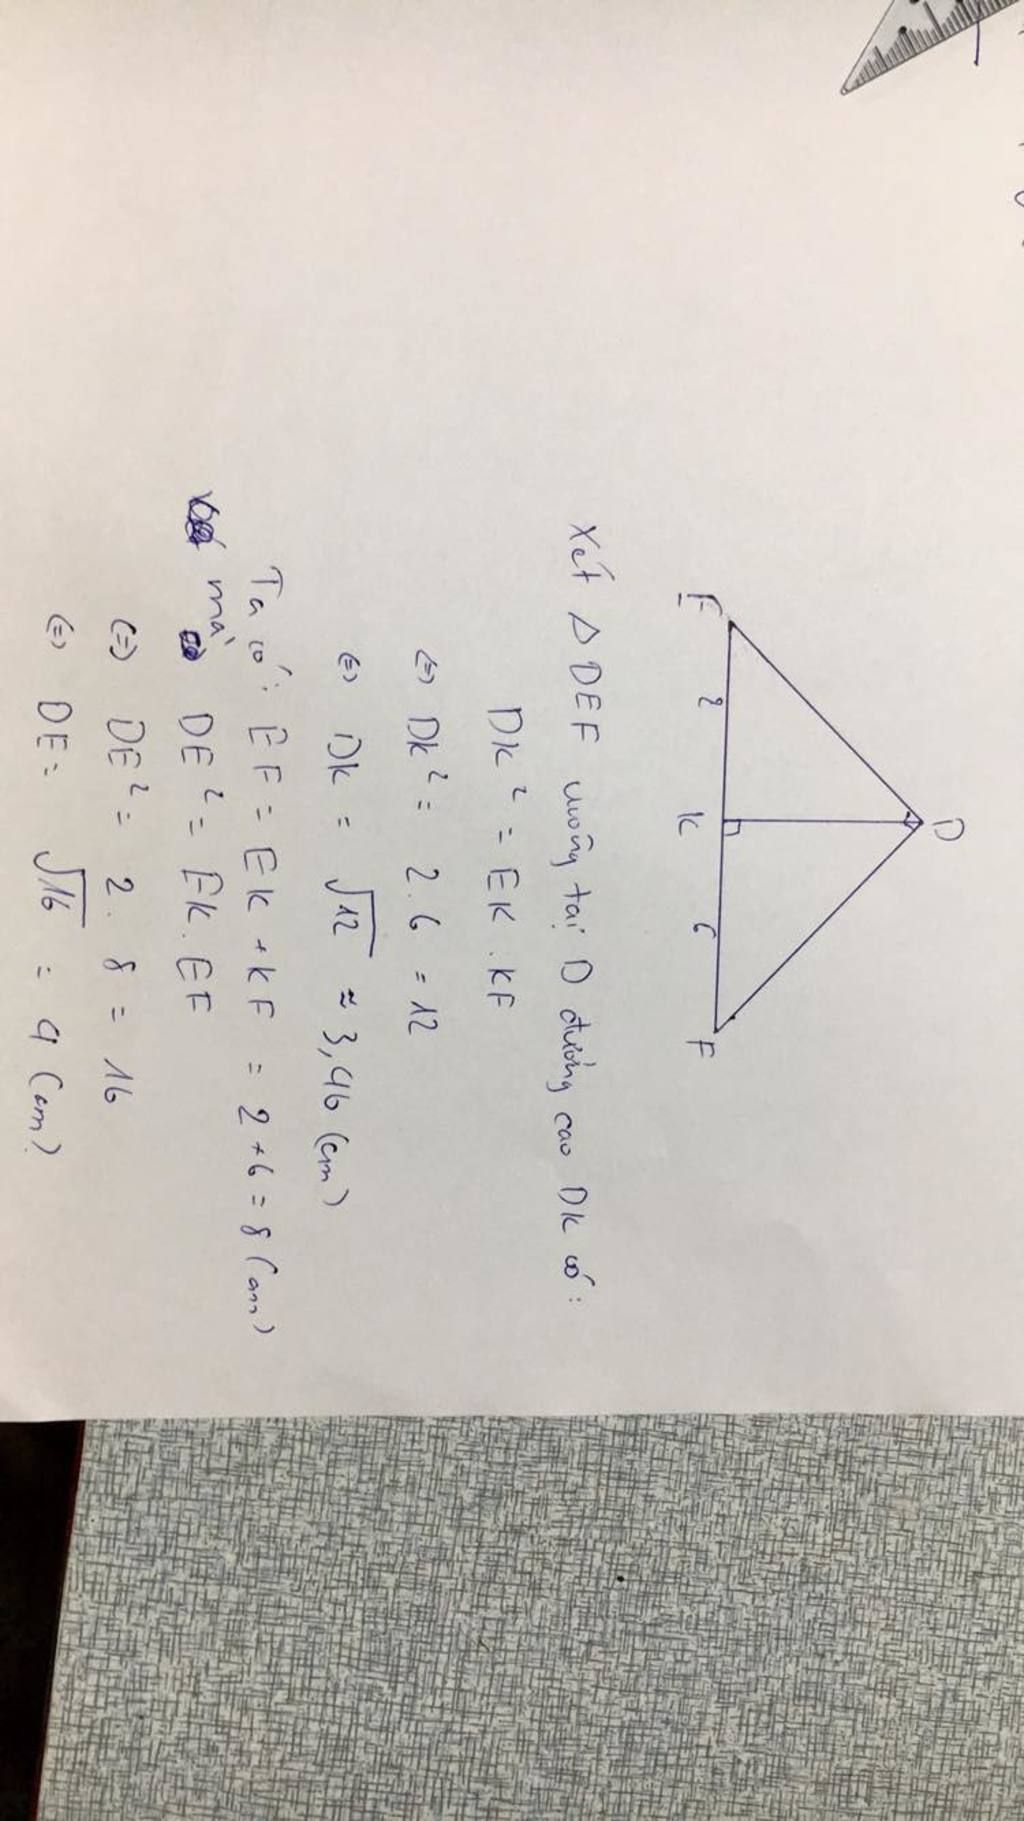 D
E 2 K 6 F
Xét Δ DEF vuông tại D đường cao DK có:
DK² = EK . KF
⇔ DK² = 2.6 = 12
⇔ DK = √12 ≈ 3,46 (cm)
Ta có: EF = EK + KF = 2+6 = 8 (cm)
mà DE² = EK. EF
⇔ DE² = 2. 8 = 16
⇔ DE = √16 = 4 (cm)